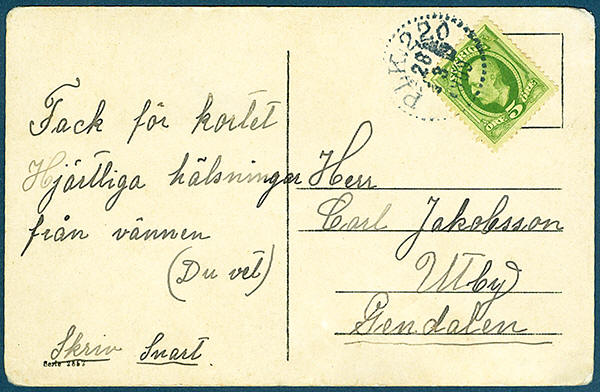 Tack för kortet
Hjärtliga hälsningar
från vännen
(Du vet)
Skriv Snart.
PLK 220
28
8
5
Herr
Carl Jakobsson
Utby
Gendalen